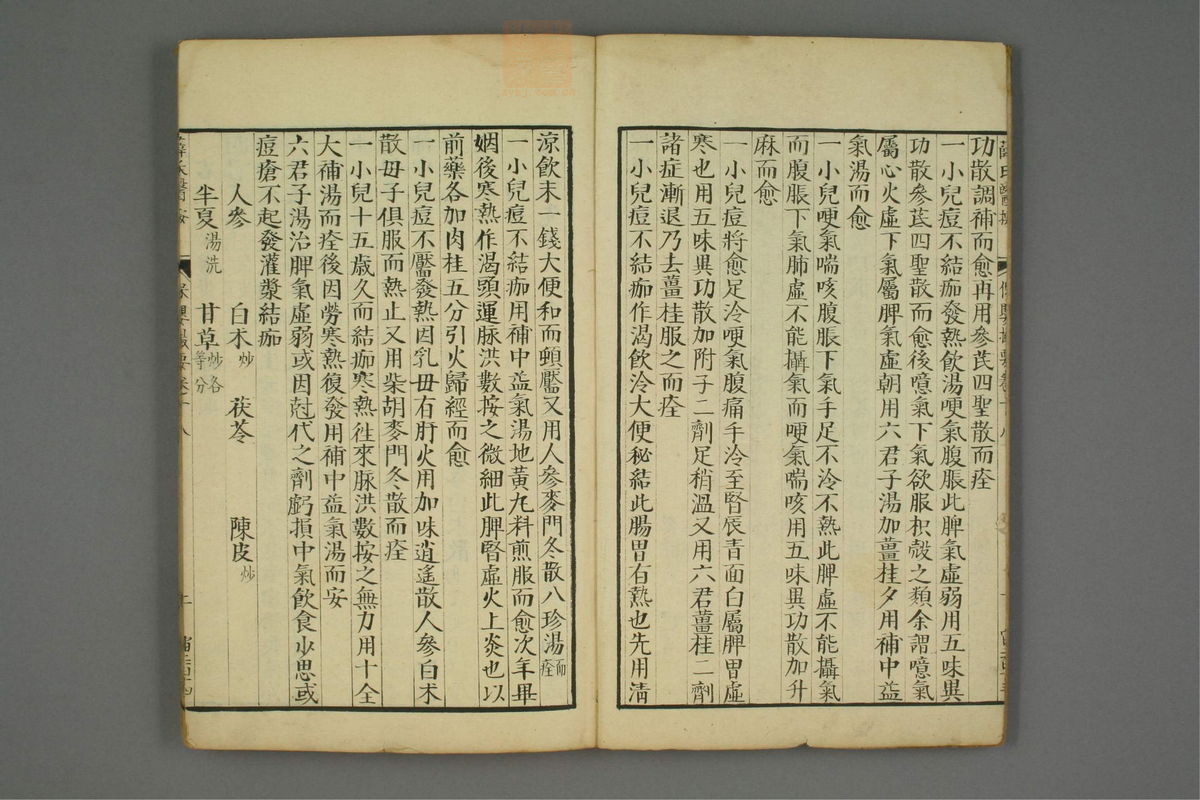 功散調補而愈再用參芪四聖散而痊
一小兒痘不結痂發熱飲湯哽氣腹脹此脾氣虛弱用五味異
功散參芪四聖散而愈後噫氣下氣欲服枳殼之類余謂噫氣
屬心火虛下氣屬脾氣虛朝用六君子湯加薑桂夕用補中益
氣湯而愈
一小兒哽氣喘咳腹脹下氣手足不冷不熱此脾虛不能攝氣
而腹脹下氣肺虛不能攝氣而哽氣喘咳用五味異功散加升
麻而愈
一小兒痘將愈足冷哽氣腹痛手冷至腎唇青面白屬脾胃虛
寒也用五味異功散加附子二劑足稍溫又用六君薑桂二劑
諸症漸退乃去薑桂服之而痊
一小兒痘不結痂作渴飲冷大便秘結此腸胃有熱也先用清
涼飲末一錢大便和而頓靨又用人參麥門冬散八珍湯而痊
一小兒痘不結痂用補中益氣湯地黃丸料煎服而愈次年畢
姻後寒熱作渴頭運脉洪數按之微細此脾腎虛火上炎也以
前藥各加肉桂五分引火歸經而愈
一小兒痘不靨發熱因乳母有肝火用加味逍遙散人參白术
散母子俱服而熱止又用柴胡麥門冬散而痊
一小兒十五歲久而結痂寒熱徃來脉洪數按之無力用十全
大補湯而痊後因勞寒熱復發用補中益氣湯而安
六君子湯治脾氣虛弱或因尅伐之劑虧損中氣飲食少思或
痘瘡不起發灌漿結痂
人參 白术炒 茯苓 陳皮炒
半夏湯洗 甘草炒各等分